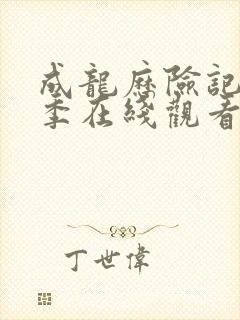 成龍歷險記
季在綫觀看
丁世偉